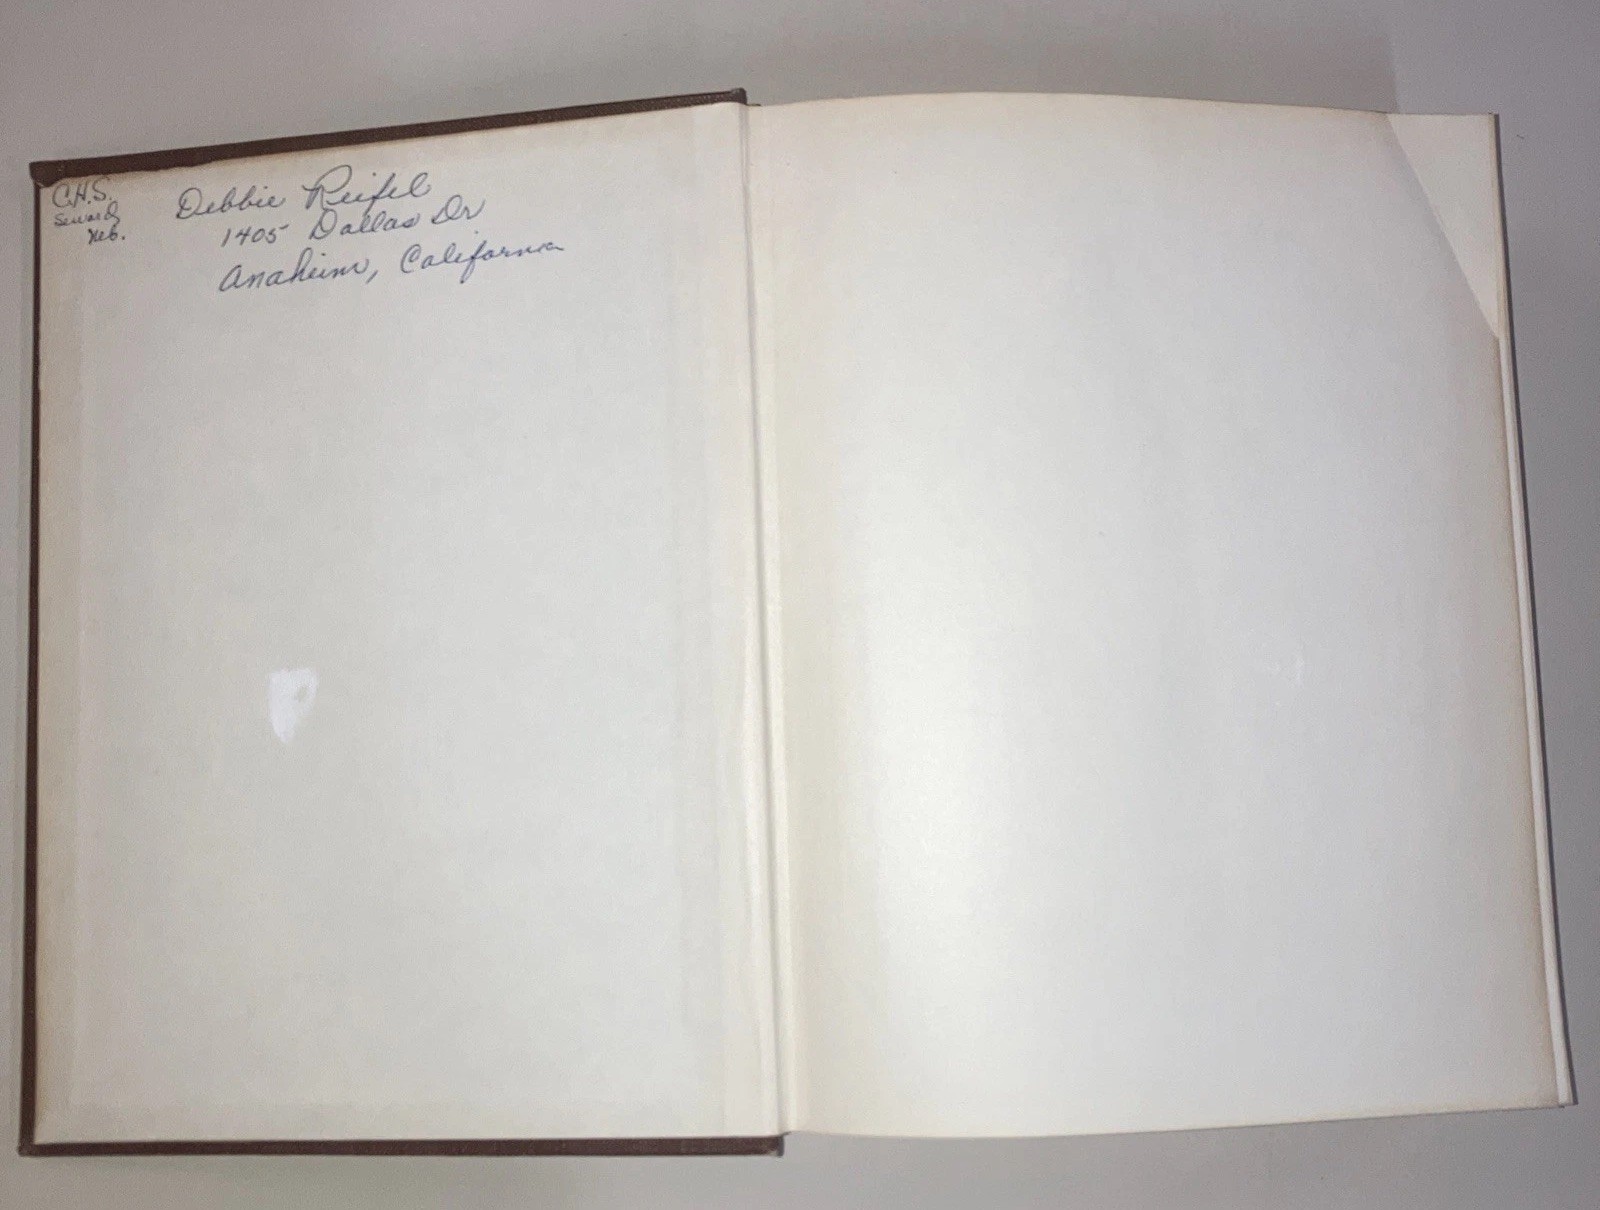 C.H.S.
Seward
Neb.
Debbie Reifel
1405 Dallas Dr
Anaheim, California